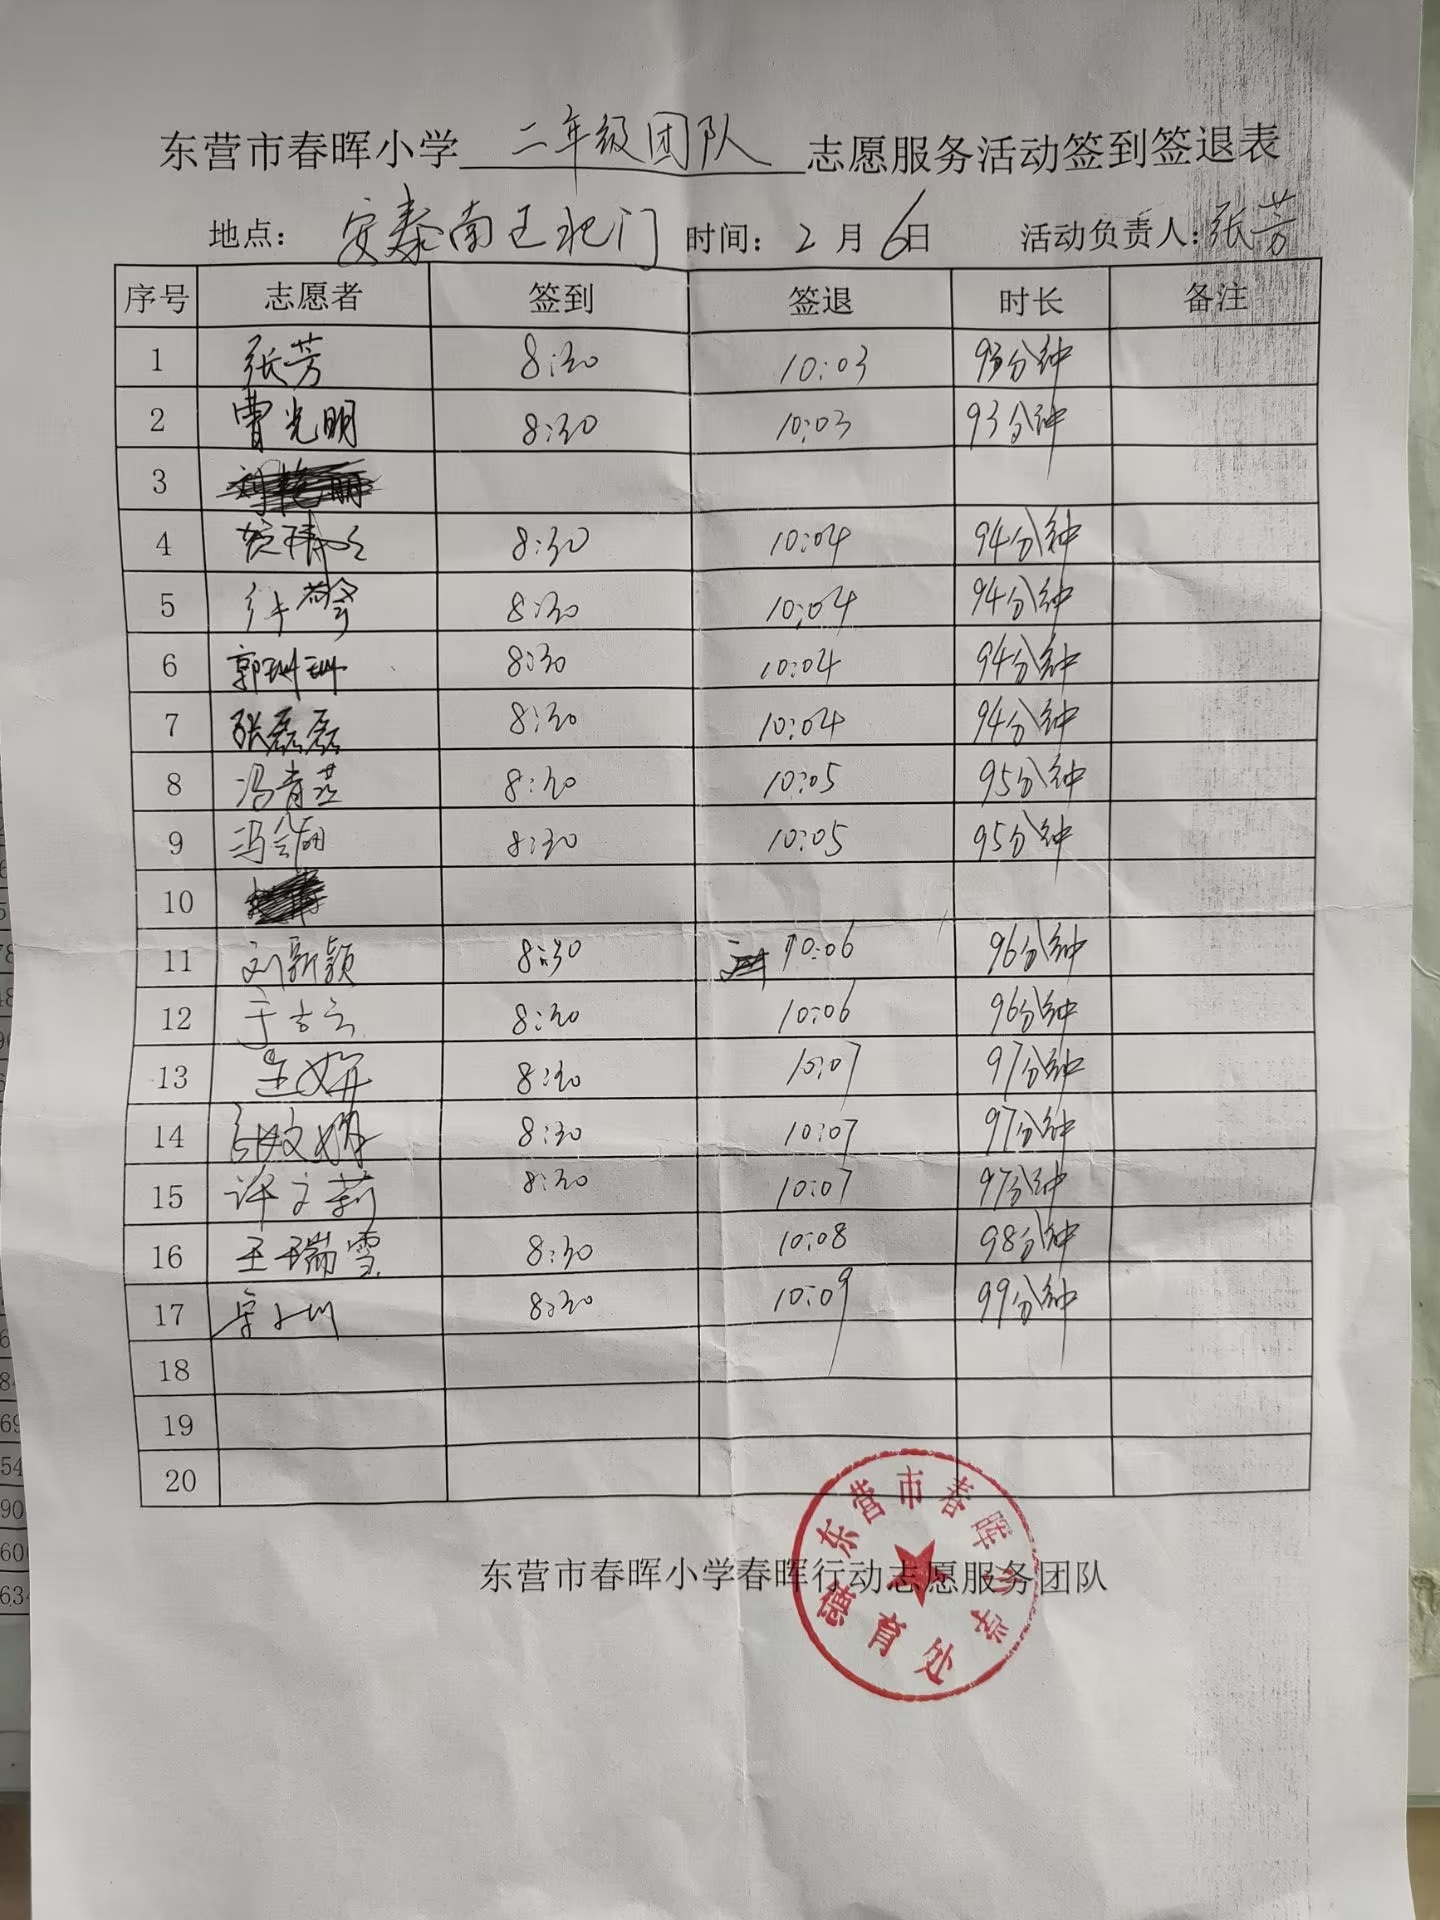 东营市春晖小学 二年级团队 志愿服务活动签到签退表
地点： 安泰南王北门 时间：2月6日 活动负责人：张芳
序号 志愿者 签到 签退 时长 备注
1 张芳 8:30 10:03 93分钟
2 曹光明 8:30 10:03 93分钟
3
4 8:30 10:04 94分钟
5 8:30 10:04 94分钟
6 郭珊珊 8:30 10:04 94分钟
7 张磊磊 8:30 10:04 94分钟
8 冯青燕 8:30 10:05 95分钟
9 冯会 8:30 10:05 95分钟
10
11 刘新颖 8:30 10:06 96分钟
12 于吉云 8:30 10:06 96分钟
13 王妍 8:30 10:07 97分钟
14 8:30 10:07 97分钟
15 许文莉 8:30 10:07 97分钟
16 王瑞雪 8:30 10:08 98分钟
17 8:30 10:09 99分钟
18
19
20
东营市春晖小学春晖行动志愿服务团队
东营市春晖小学
德育处